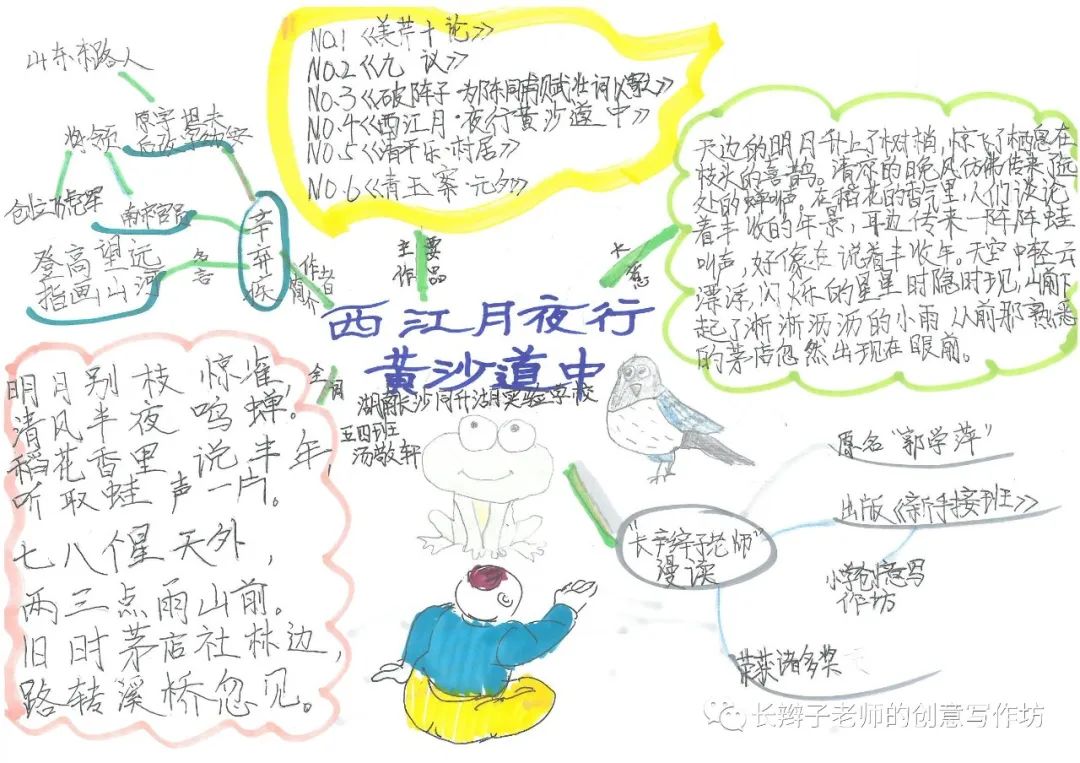 西江月夜行
黄沙道中
湖南长沙同升湖实验学校
五四班
汤敬轩
主要
作品
NO.1《美芹十论》
NO.2《九议》
NO.3《破阵子·为陈同甫赋壮词以寄之》
NO.4《西江月·夜行黄沙道中》
NO.5《清平乐·村居》
NO.6《青玉案·元夕》
大意
天边的明月升上了树梢,惊飞了栖息在
枝头的喜鹊。清凉的晚风仿佛传来了远
处的蝉鸣。在稻花的香气里,人们谈论
着丰收的年景,耳边传来一阵阵蛙
叫声,好像在说着丰收年。天空中轻云
漂浮,闪烁的星星时隐时现,山前下
起了淅淅沥沥的小雨 从前那熟悉
的茅店忽然出现在眼前。
作者
简介
辛弃疾
原字坦夫
山东东路人
将领
创立飞虎军
南宋官员
名言
登高望远
指画山河
全词
明月别枝惊雀,
清风半夜鸣蝉。
稻花香里说丰年,
听取蛙声一片。
七八个星天外,
两三点雨山前。
旧时茅店社林边,
路转溪桥忽见。
"长辫子老师"
漫谈
原名"郭学萍"
出版《新手接班》
小学创意写
作坊
荣获诸多奖
长辫子老师的创意写作坊